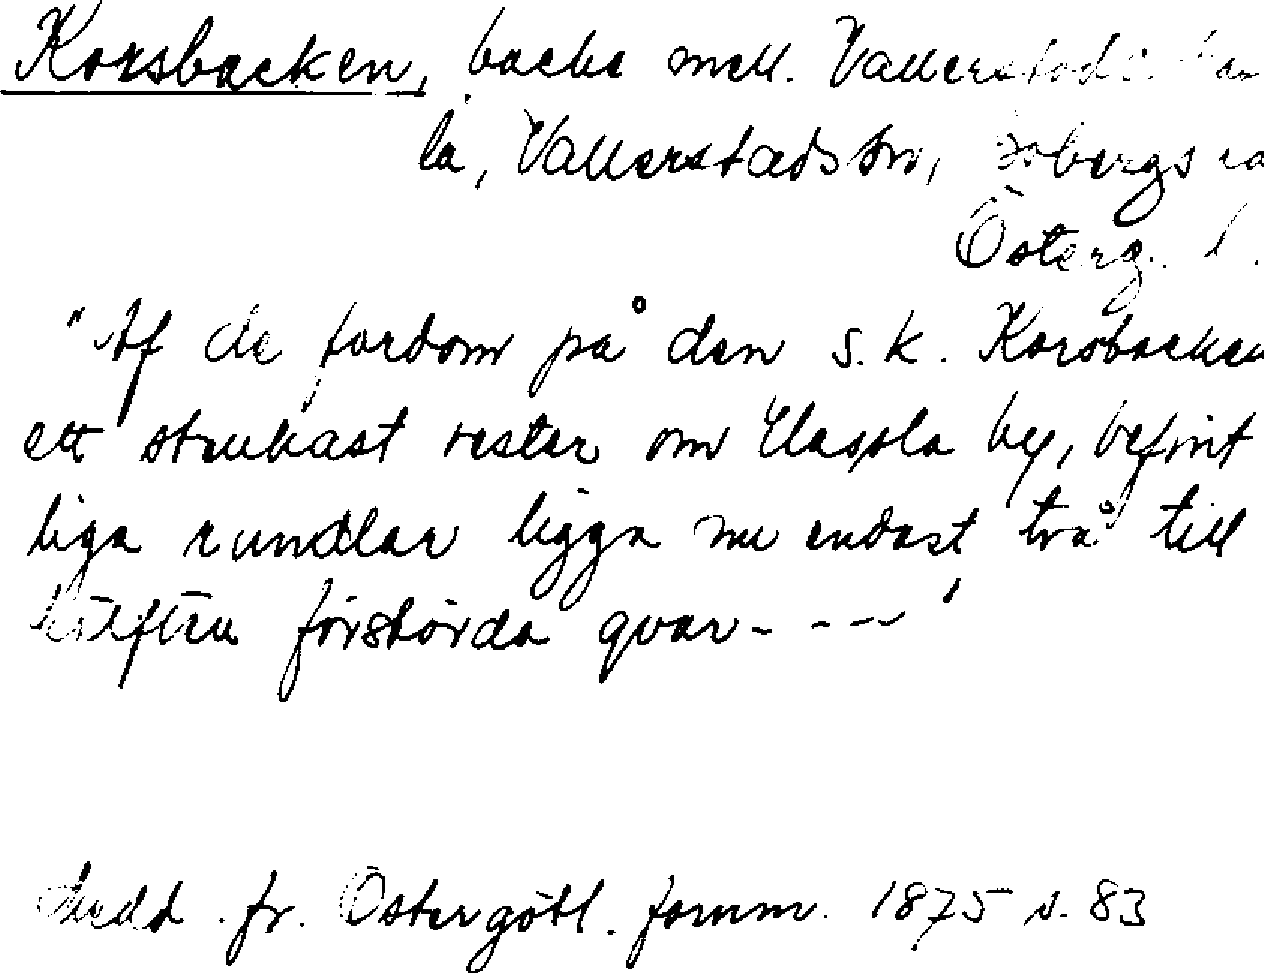 Korsbacken, backe mell. Vallerstad o.
la, Vallerstads sn, Bobergs
Österg. l.
"Af de fordom på den s.k. Korsbacken
ett stenkast vester om Haspla by, befint
liga rundlar ligga nu endast två till
hälften förstörda qvar- - - -"
Medd. fr. Östergötl. fornm. 1875 s. 83